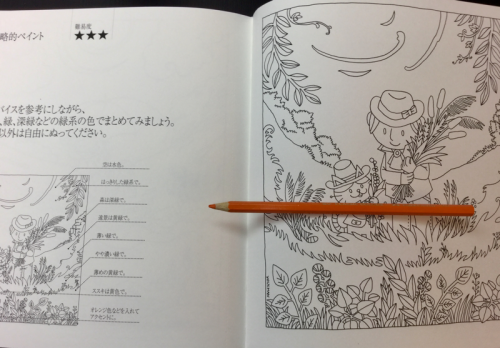 難易度
略的ペイント
★★★
バイスを参考にしながら、
、緑、深緑などの緑系の色でまとめてみましょう。
以外は自由にぬってください。
空は水色。
はっきりした緑系で。
森は深緑で。
遠景は青緑で。
薄い緑で。
やや濃い緑で。
薄めの黄緑で。
ススキは黄色で。
オレンジ色などを入れて
アクセントに。